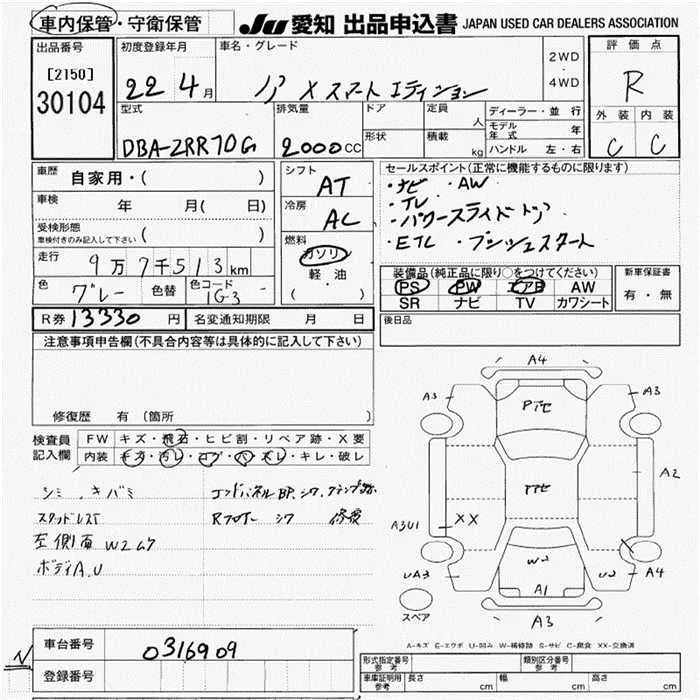 車内保管・守衛保管
JU 愛知 出品申込書 JAPAN USED CAR DEALERS ASSOCIATION
出品番号
[2150]
30104
初度登録年月
22 4月
車名・グレード
ノア X スマート エディション
2WD
・
4WD
評価点
R
外装 内装
C C
型式
DBA-ZRR70G
排気量
2000CC
ドア
形状
定員
人
積載
kg
ディーラー・並行
モデル年式 年
ハンドル 左・右
車歴 自家用・( )
車検 年 月( 日)
受検形態
車検付きのみ記入して下さい ( )
走行 9万7千513km
色 グレー 色替 色コード 1G3
シフト AT
冷房 AC
燃料
ガソリン
軽・油
( )
セールスポイント(正常に機能するものに限ります)
・ナビ ・AW
・TV
・パワースライドドア
・ETC ・プッシュスタート
装備品(純正品に限り○をつけてください)
PS PW エアB AW
SR ナビ TV カワシート
新車保証書
有・無
R券 13330 円 名変通知期限 月 日
後日品
注意事項申告欄(不具合内容等は具体的に記入して下さい)
修復歴 有(箇所 )
検査員記入欄
FW キズ・飛石・ヒビ割・リペア跡・X要
内装 キズ・汚レ・コゲ・ハズレ・キレ・破レ
シミ、キバミ
スタッドレスT
左側面 W2
ボディA.U
エンドパネルBP、シワ、クランプ跡
Rフロアー シワ 修復
A4
A3
A3
A2
A3U1
XX
W2
A1
UA3
U2
A4
A3
スペア
A-キズ E-エクボ U-凹み W-補修跡 S-サビ C-腐食 XX-交換済
車台番号 0316909
登録番号
N
形式指定番号 参考
類別区分番号 参考
車庫証明用 参考
長さ cm
幅 cm
高さ cm